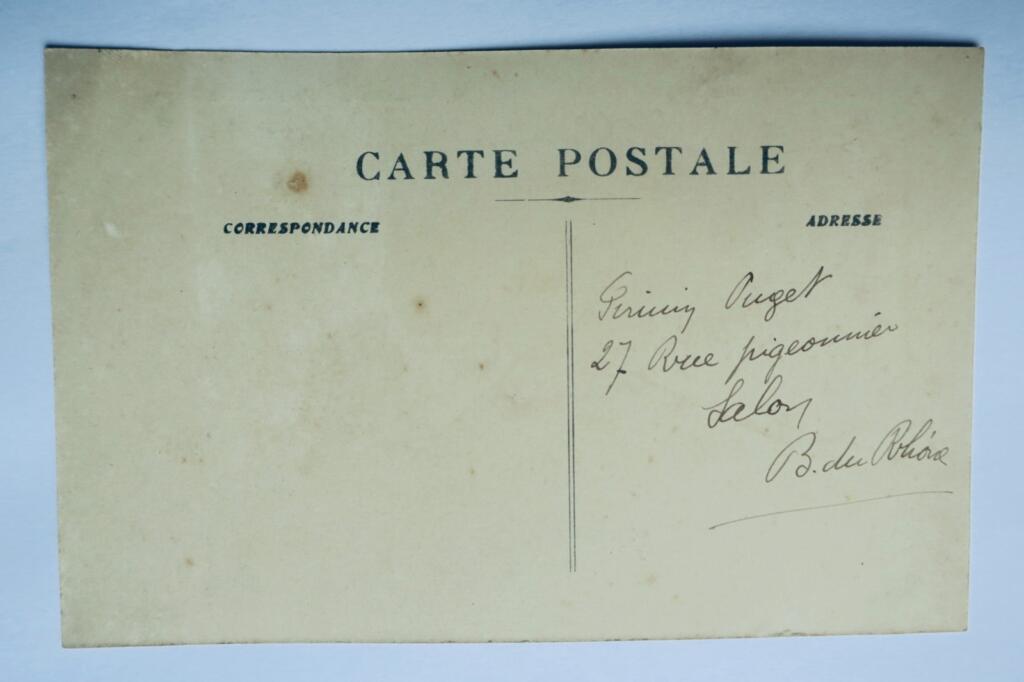 CARTE POSTALE
CORRESPONDANCE
ADRESSE
Puget
27 Rue pigeonnier
Salon
B. du Rhône